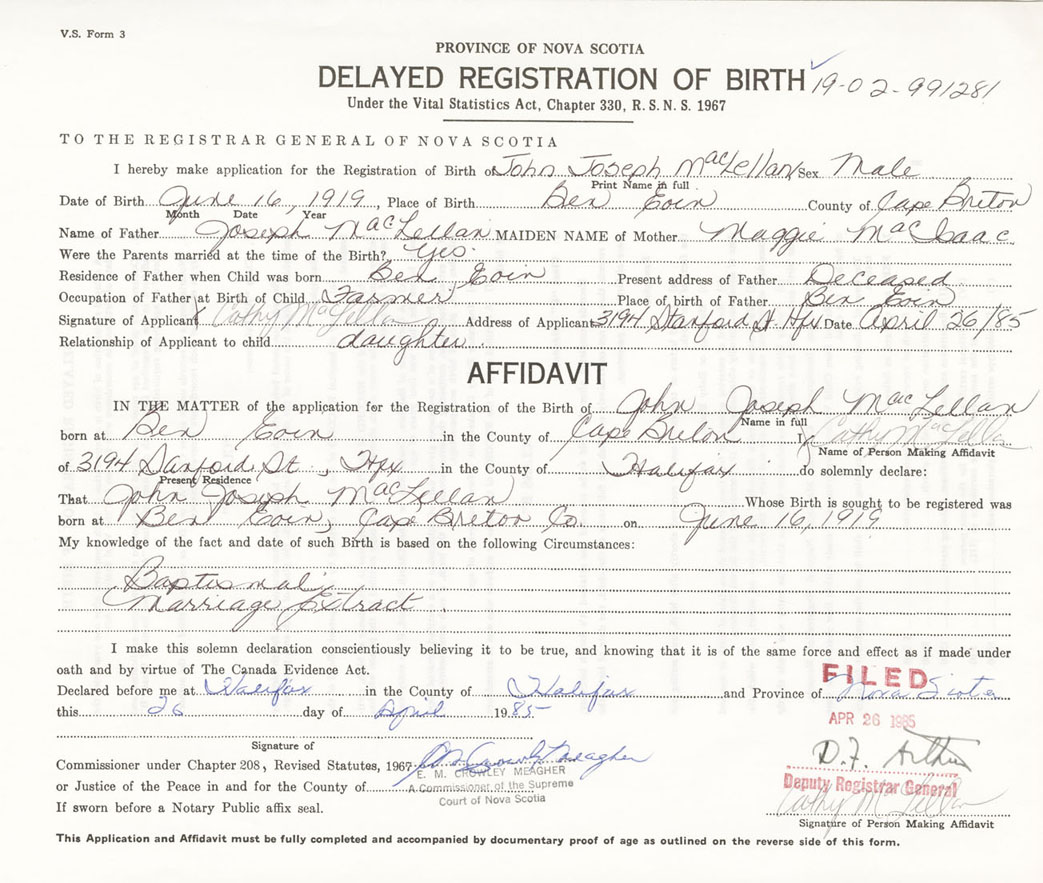 V.S. Form 3
PROVINCE OF NOVA SCOTIA
DELAYED REGISTRATION OF BIRTH 19-02-991281
Under the Vital Statistics Act, Chapter 330, R.S.N.S. 1967
TO THE REGISTRAR GENERAL OF NOVA SCOTIA
I hereby make application for the Registration of Birth of John Joseph MacLellan Sex Male
Print Name in full
Date of Birth June 16, 1919, Place of Birth Ben Eoin County of Cape Breton
Month Date Year
Name of Father Joseph MacLellan MAIDEN NAME of Mother Maggie MacIsaac
Were the Parents married at the time of the Birth? Yes.
Residence of Father when Child was born Ben Eoin Present address of Father Deceased
Occupation of Father at Birth of Child Farmer Place of birth of Father Ben Eoin
Signature of Applicant Cathy McLellan Address of Applicant 3194 Stanford St. Hfx Date April 26/85
Relationship of Applicant to child daughter.
AFFIDAVIT
IN THE MATTER of the application for the Registration of the Birth of John Joseph MacLellan
Name in full
born at Ben Eoin in the County of Cape Breton I, Cathy McLellan
Name of Person Making Affidavit
of 3194 Stanford St, Hfx in the County of Halifax do solemnly declare:
Present Residence
That John Joseph MacLellan Whose Birth is sought to be registered was
born at Ben Eoin, Cape Breton Co. on June 16, 1919
My knowledge of the fact and date of such Birth is based on the following Circumstances:
Baptismal
Marriage Extract
I make this solemn declaration conscientiously believing it to be true, and knowing that it is of the same force and effect as if made under
oath and by virtue of The Canada Evidence Act.
FILED
Declared before me at Halifax in the County of Halifax and Province of Nova Scotia
this 26 day of April 1985
APR 26 1985
Signature of
D.F. Arthur
Commissioner under Chapter 208, Revised Statutes, 1967 Crowley Meagher
E. M. CROWLEY MEAGHER
or Justice of the Peace in and for the County of
A Commissioner of the Supreme
Deputy Registrar General
Court of Nova Scotia
Cathy McLellan
If sworn before a Notary Public affix seal.
Signature of Person Making Affidavit
This Application and Affidavit must be fully completed and accompanied by documentary proof of age as outlined on the reverse side of this form.